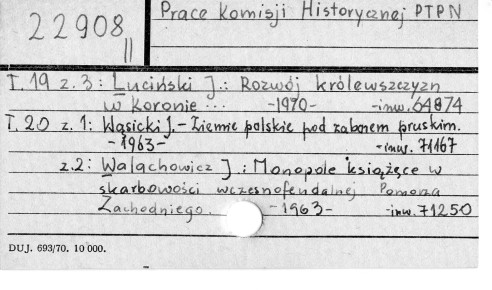 22908
II
Prace Komisji Historycznej PTPN
T. 19 z. 3: Luciński J.: Rozwój królewszczyzn
w Koronie ... -1970- -inw. 64874
T. 20 z. 1: Wąsicki J. - Ziemie polskie pod zaborem pruskim.
- 1963- -inw. 71167
z. 2: Walachowicz J.: Monopole książęce w
skarbowości wczesnofeudalnej Pomorza
Zachodniego. - 1963 - -inw. 71250
DUJ. 693/70. 10 000.